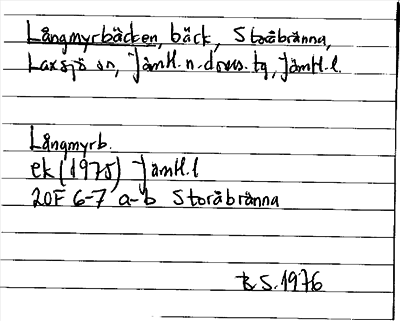 Långmyrbäcken, bäck, Storåbränna,
Laxsjö sn, Jämtl. n. doms. tg, Jämtl. l.
Långmyrb.
ek (1975) Jämtl. l
20F 6-7 a-b Storåbränna
B S. 1976